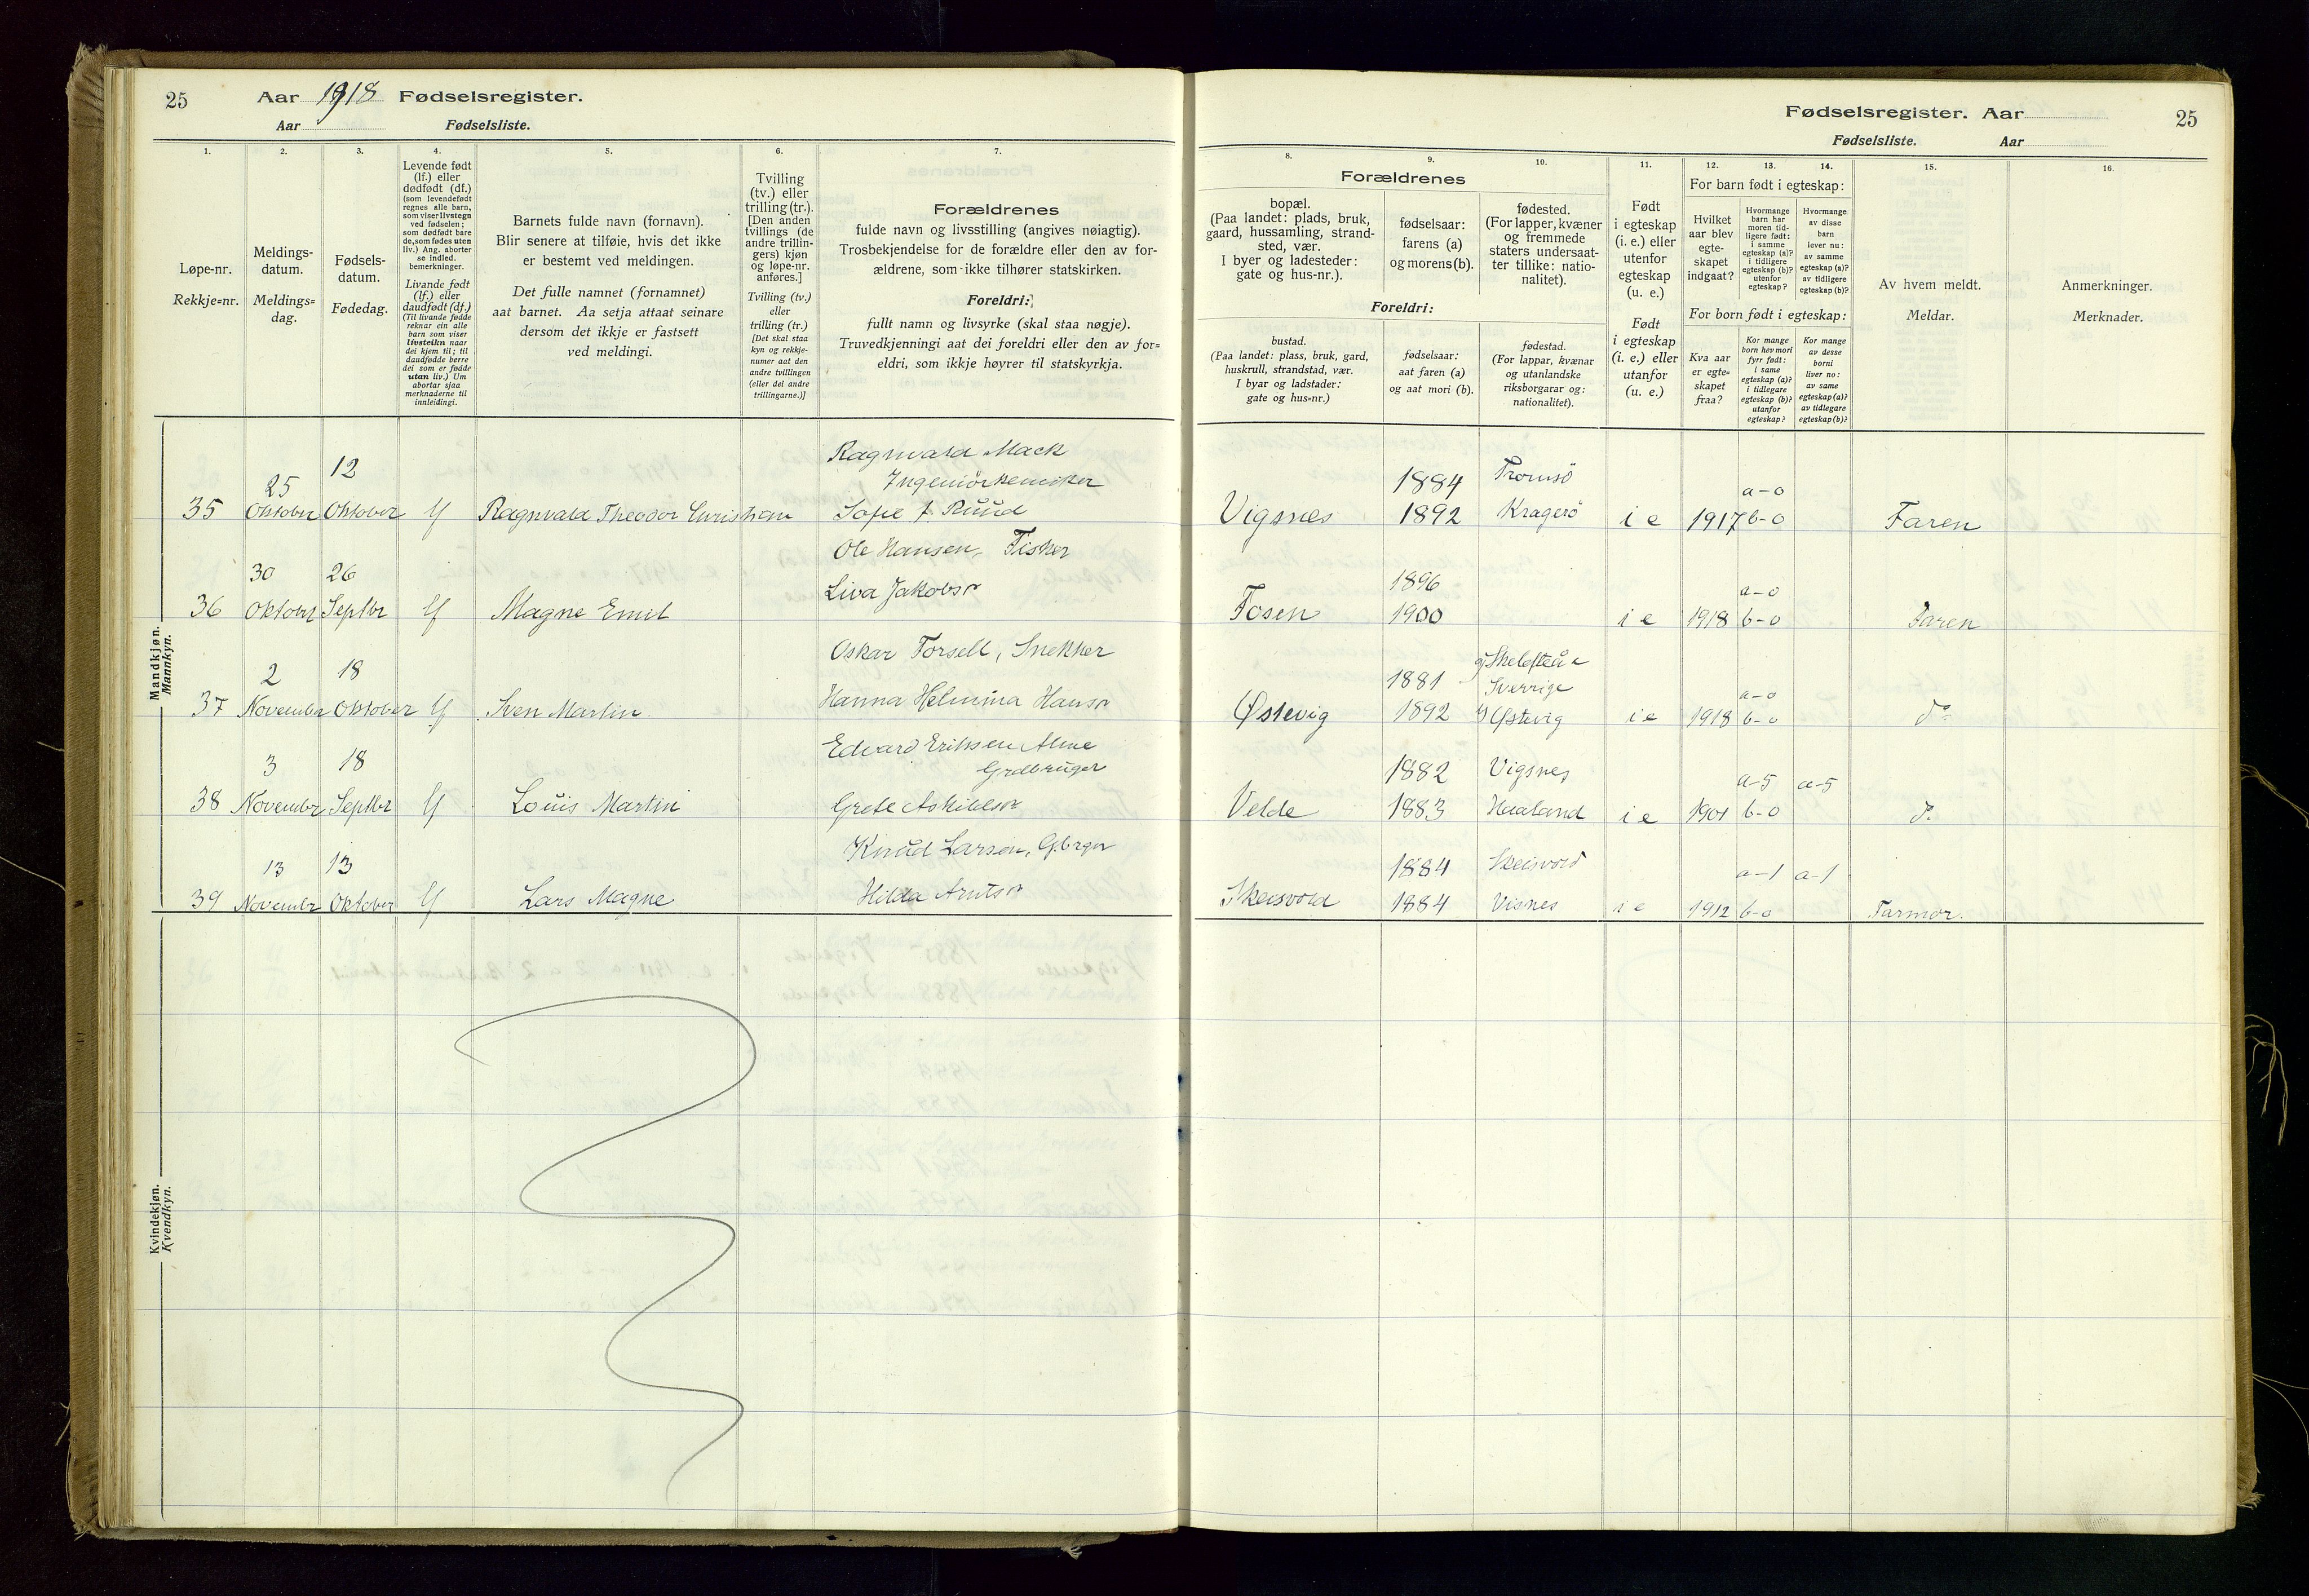 25 Aar 1918 Fødselsregister.
Aar Fødselsliste.
Fødselsregister. Aar 25
Fødselsliste. Aar
1. 2. 3. 4. 5. 6. 7.
Løpe-nr.
Rekkje=nr.
Meldings-
datum.
Meldings=
dag.
Fødsels-
datum.
Fødedag.
Levende født
(lf.) eller
dødfødt (df.)
(som levendefødt
regnes alle barn,
som viser livstegn
ved fødselen;
som dødfødt bare
de, som fødes uten
liv.) Ang. aborter
se indled.
bemerkninger.
Livande født
(lf.) eller
daudfødt (df.)
(Til livande fødde
reknar ein alle
barn som viser
livsteikn naar
dei kjem til; til
daudfødde berre
dei som er fødde
utan liv.) Um
abortar sjaa
merknaderne til
innleidingi.
Barnets fulde navn (fornavn).
Blir senere at tilføie, hvis det ikke
er bestemt ved meldingen.
Det fulle namnet (fornamnet)
aat barnet. Aa setja attaat seinare
dersom det ikkje er fastsett
ved meldingi.
Tvilling
(tv.) eller
trilling (tr.).
[Den anden
tvillings (de
andre trillin-
gers) kjøn
og løpe-nr.
anføres.]
Tvilling (tv.)
eller
trilling (tr.)
[Det skal staa
kyn og rekkje-
numer aat den
andre tvillingen
(eller dei andre
trillingarne.)]
Forældrenes
fulde navn og livsstilling (angives nøiagtig).
Trosbekjendelse for de forældre eller den av for-
ældrene, som ikke tilhører statskirken.
Foreldri:
fullt namn og livsyrke (skal staa nøgje).
Truvedkjenningi aat dei foreldri eller den av for=
eldri, som ikkje høyrer til statskyrkja.
8. 9. 10. 11. 12. 13. 14. 15. 16.
Forældrenes
bopæl.
(Paa landet: plads, bruk,
gaard, hussamling, strand-
sted, vær.
I byer og ladesteder:
gate og hus-nr.).
fødselsaar:
farens (a)
og morens (b).
fødested.
(For lapper, kvæner
og fremmede
staters undersaat-
ter tillike: natio-
nalitet).
Foreldri:
bustad.
(Paa landet: plass, bruk, gard,
huskrull, strandstad, vær.
I byar og ladstader:
gate og hus=nr.)
fødselsaar:
aat faren (a)
og aat mori (b).
fødestad.
(For lappar, kvænar
og utanlandske
riksborgarar og:
nationalitet).
Født
i egteskap
(i. e.) eller
utenfor
egteskap
(u. e.)
Født
i egteskap
(i. e.) eller
utanfor
(u. e.)
For barn født i egteskap:
Hvilket
aar blev
egte-
skapet
indgaat?
Hvormange
barn har
moren tid-
ligere født:
i samme
egteskap (a)?
i tidligere
egteskap (b)?
utenfor
egteskap?
Hvormange
av disse
barn
lever nu:
av samme
egteskap (a)?
av tidligere
egteskap (b)?
For born født i egteskap:
Kva aar
er egte=
skapet
fraa?
Kor mange
born hev mori
fyrr født:
i same
egteskap (a)?
i tidlegare
egteskap (b)?
utanfor
egteskap?
Kor mange
av desse
borni
liver no:
av same
egteskap (a)?
av tidlegare
egteskap (b)?
Av hvem meldt.
Meldar.
Anmerkninger.
Merknader.
Mandkjøn.
Mannkyn.
Ragnvald Mack
12 Ingeniörkemiker 1884 Tromsö a-0
25
35 Oktober Oktober lf Ragnvald Theodor Christian Sofie f. Ruud Vigsnes 1892 Kragerö i e 1917 b-0 Faren
Ole Hansen, Fisker
30 26 Liva Jakobsr 1896 a-0
36 Oktobr Septbr lf Magne Emil Fosen 1900 i e 1918 b-0 Faren
Oskar Forsell, Snekker Skelefteå
2 18 1881 Sverrige a-0
37 Novembr Oktober lf Sven Martin Hanna Helmina Hansr Østevig 1892 Østevig i e 1918 b-0 do
Edvard Eriksen Alne
3 18 Grdbruger 1882 Vigsnes a-5 a-5
38 Novembr Septbr lf Louis Martin Grete Askildsr Velde 1883 Haaland i e 1901 b-0 do
Knud Larsen, Gbrger
13 13 1884 Skeisvold a-1 a-1
39 Novembr Oktober lf Lars Magne Hilda Arntsr Skeisvold 1884 Visnes i e 1912 b-0 Farmor.
Kvindekjøn.
Kvendkyn.